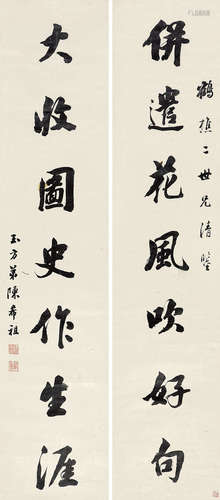 鶴樵二世兄清鑒
併遣花風吹好句
大收圖史作生涯
玉方弟陳希祖